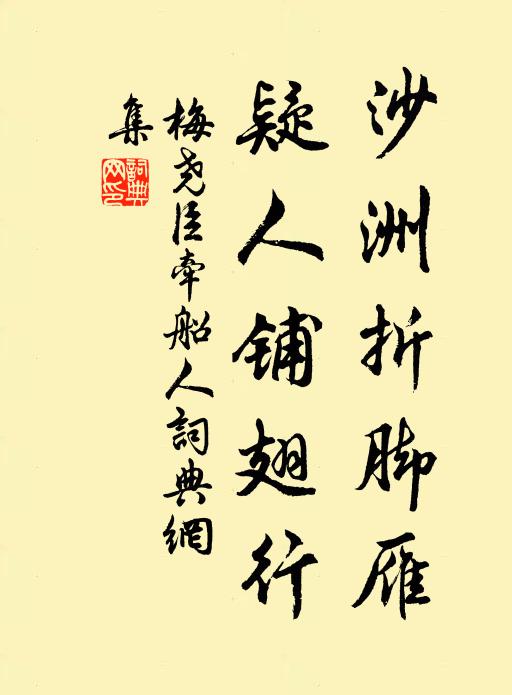 沙洲折脚雁
疑人铺翅行
梅尧臣牵船人詞典網
集
詞典網印